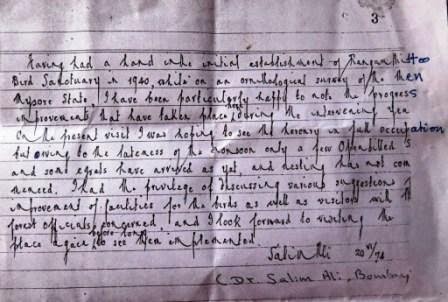 3
Having had a hand in the initial establishment of Ranganthittoo
Bird Sanctuary in 1940, while on an ornithological survey of the then
Mysore State, I have been particularly happy to note the progress
improvements that have taken place here during the intervening
On the present visit I was hoping to see the heronry in full occupation
but owing to the lateness of the monsoon only a few Openbilled S
and some egrets have arrived as yet, and nesting has not com
menced. I had the privilege of discussing various suggestions
improvement of facilities for the birds as well as visitors with th
forest officials concerned, and I look forward to visiting the
place again before long to see them implemented.
Salim Ali 20 VI/76
(Dr. Salim Ali, Bombay)